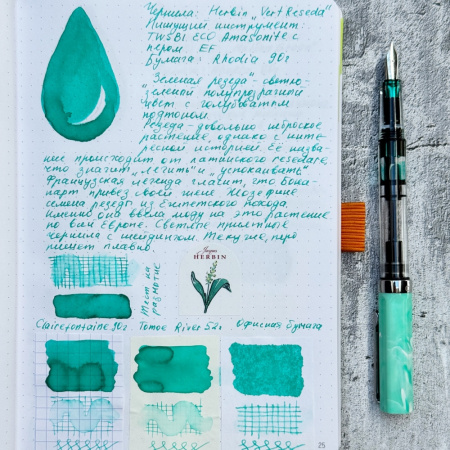 Чернила: Herbin „Vert Reseda"
Пишущий инструмент:
TWSBI ECO Amazonite с
пером EF
Бумага: Rhodia 90г
„Зеленая резеда" – светло-
зеленый полупрозрачный
цвет с голубоватым
подтоном.
Резеда – довольно
растение, однако с инте-
ресной историей. Её назва-
ние происходит от латинского resedare,
что значит „лечить" и „успокаивать"
Французская легенда гласит, что Бона-
парт привёз своей жене Жозефине
семена резеды из Египетского похода
именно она ввела моду на это растение
по всей Европе. Светлые приятные
чернила с шейдингом. Текучие, перо
пишет плавно.
Тест на
размытие
Jacques
HERBIN
Clairefontaine 90г Tomoe River 52г Офисная бумага
25